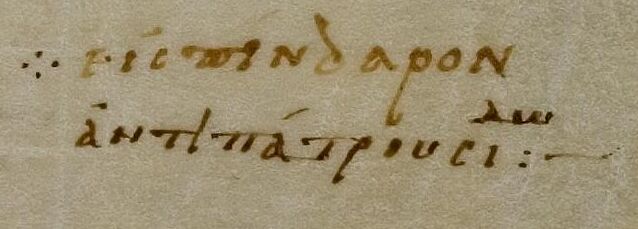 ⁘ εἰς πίνδαρον
ἀντιπάτρου σιδω :—